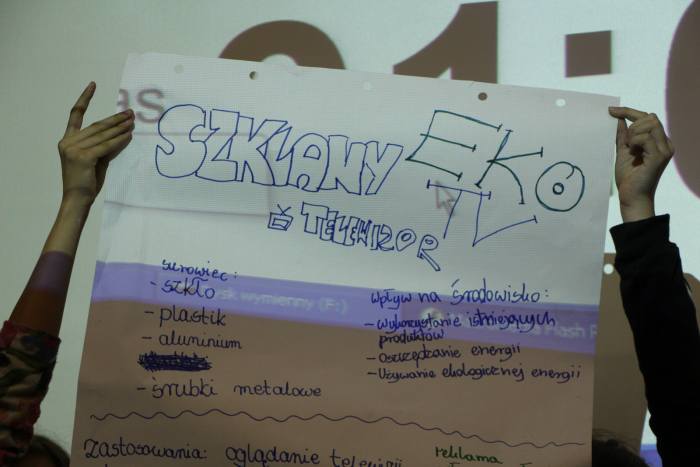 as
SZKLANY EKO
TV
TELEWIZOR
surowiec:
- szkło
- plastik
- aluminium
- śrubki metalowe
wpływ na środowisko:
- wykorzystanie istniejących
produktów
- Oszczędzanie energii
- Używanie ekologicznej energii
sk wymienny (F:)
Flash
Zastosowania: oglądanie telewizji
reklama